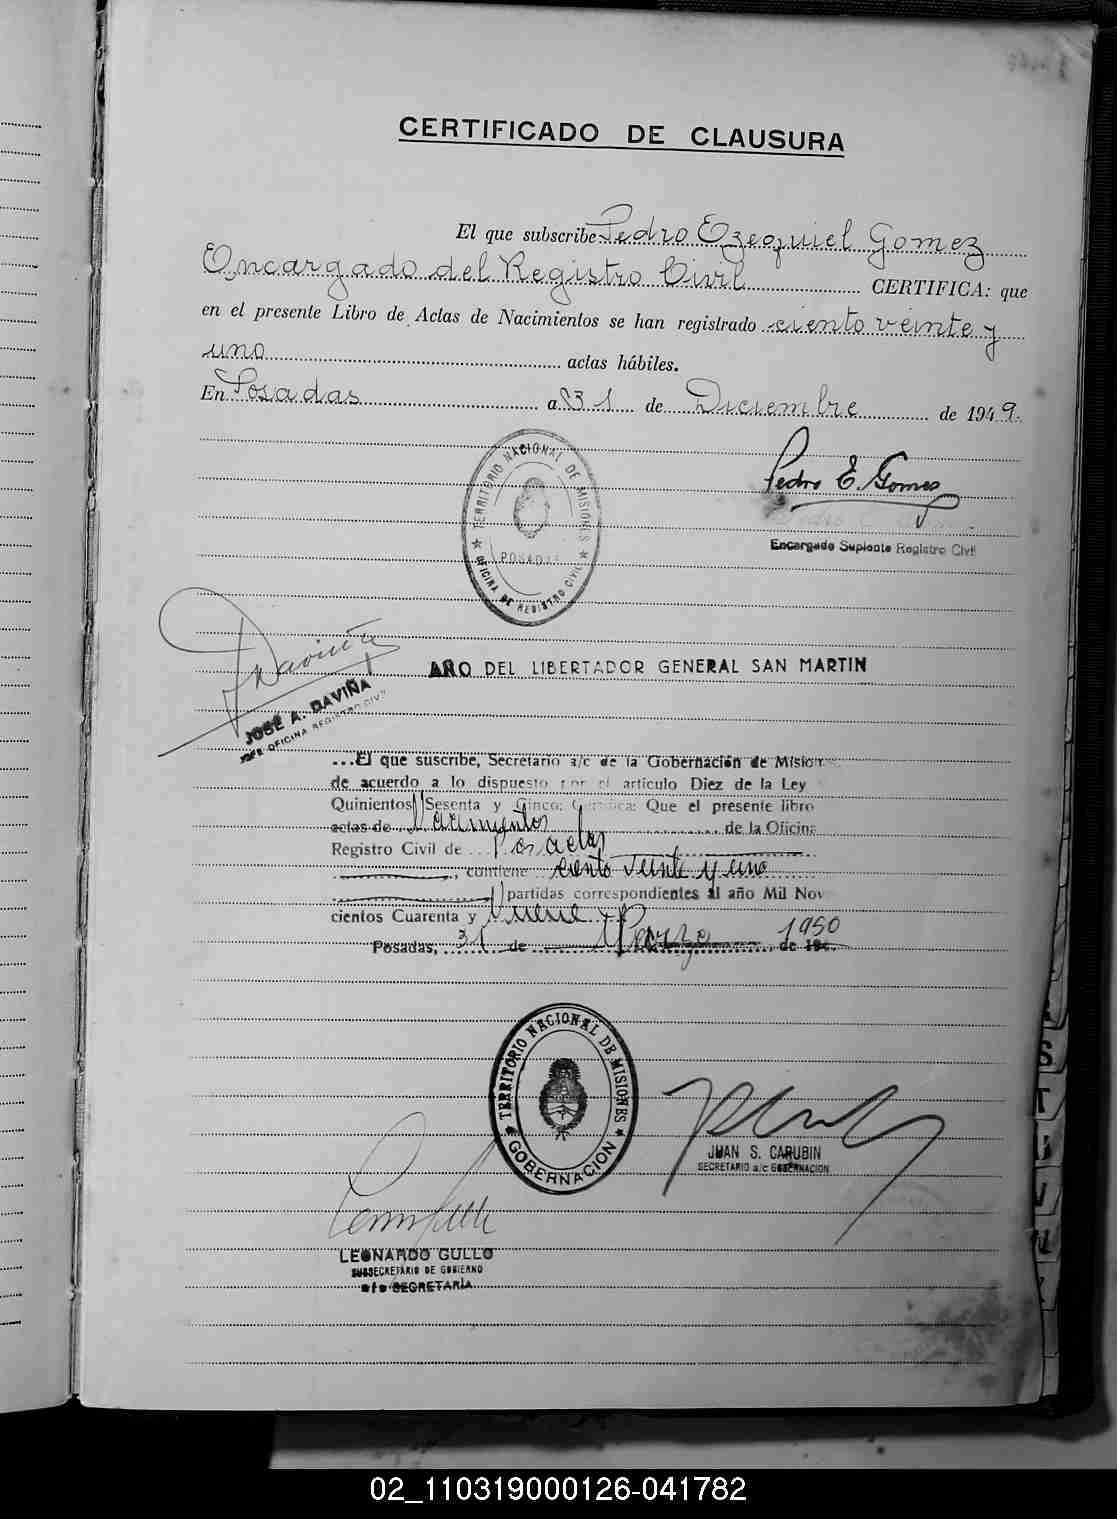 CERTIFICADO DE CLAUSURA
El que subscribe Pedro Ezequiel Gomez
Encargado del Registro Civil CERTIFICA: que
en el presente Libro de Actas de Nacimientos se han registrado ciento veinte y
uno actas hábiles.
En Posadas a 31 de Diciembre de 1949.
TERRITORIO NACIONAL DE MISIONES
POSADAS
OFICINA DE REGISTRO CIVIL
Pedro E. Gomes
Encargado Suplente Registro Civil
Daviña
JOSÉ A. DAVIÑA
JEFE OFICINA REGISTRO CIVIL
AÑO DEL LIBERTADOR GENERAL SAN MARTIN
...El que suscribe, Secretario a/c de la Gobernación de Mision
de acuerdo a lo dispuesto por el artículo Diez de la Ley
Quinientos Sesenta y Cinco; Certifica: Que el presente libro
actas de Nacimientos de la Oficina
Registro Civil de Posadas
, contiene ciento veinte y uno
partidas correspondientes al año Mil Nov
cientos Cuarenta y Nueve
Posadas, 31 de Marzo de 194 1950
TERRITORIO NACIONAL DE MISIONES
GOBERNACION
JUAN S. CARUBIN
SECRETARIO a/c GOBERNACION
LEONARDO GULLO
SUBSECRETARIO DE GOBIERNO
a/c SECRETARÍA
S
T
U
V
02_110319000126-041782